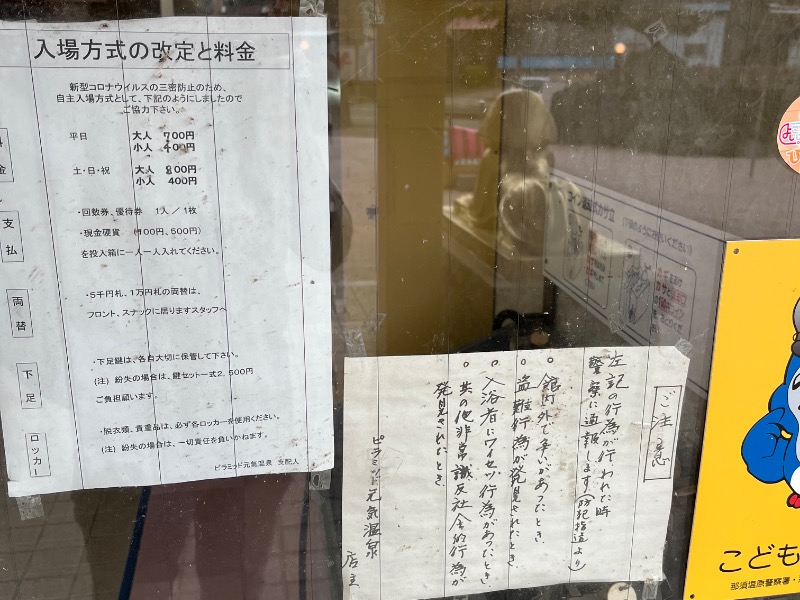 入場方式の改定と料金
新型コロナウイルスの三密防止のため、
自主入場方式として、下記のようにしましたので
ご協力下さい。
平日 大人 700円
小人 400円
土・日・祝 大人 800円
小人 400円
支払
・回数券、優待券 1人／1枚
・現金硬貨 (100円、500円)
を投入箱に一人一人入れてください。
両替
・5千円札、1万円札の両替は、
フロント、スナックに居りますスタッフへ
下足
・下足鍵は、各自大切に保管して下さい。
(注) 紛失の場合は、鍵セット一式2,500円
ご負担願います。
ロッカー
・脱衣類、貴重品は、必ず各ロッカーを使用ください。
(注) 紛失の場合は、一切責任を負いかねます。
ピラミッド元氣温泉 支配人
ご注意
左記の行為が行われた時
警察に通報します(防犯指導より)
○館内外で争いがあったとき
○盗難行為が発見されたとき
○入浴者にワイセツ行為があったとき
○其の他非常識反社会的行為が
発見されたとき
ピラミッド元気温泉
店主
こども
那須塩原警察署・